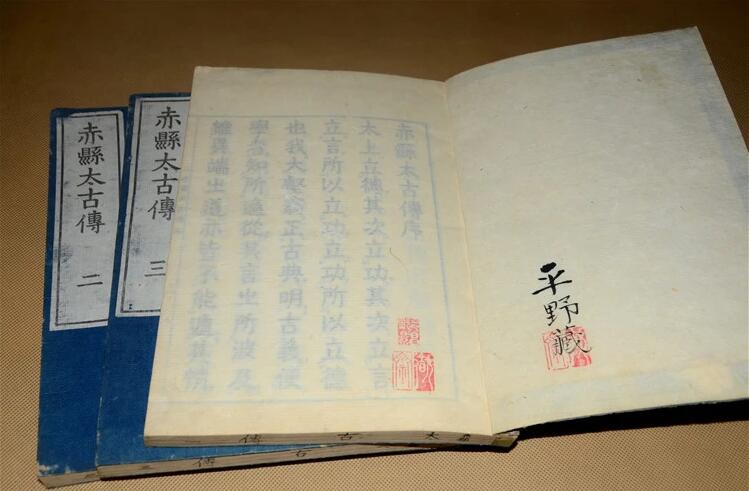 赤縣太古傳 二
赤縣太古傳 三
赤縣太古傳序
太上立德其次立功其次立言
立言所以立功立功所以立德
也我大壑翁正古典明古義使
學者知所適從其言也所波及
雖異端之道亦皆不能遁其情
平野藏
太古傳一
古傳三